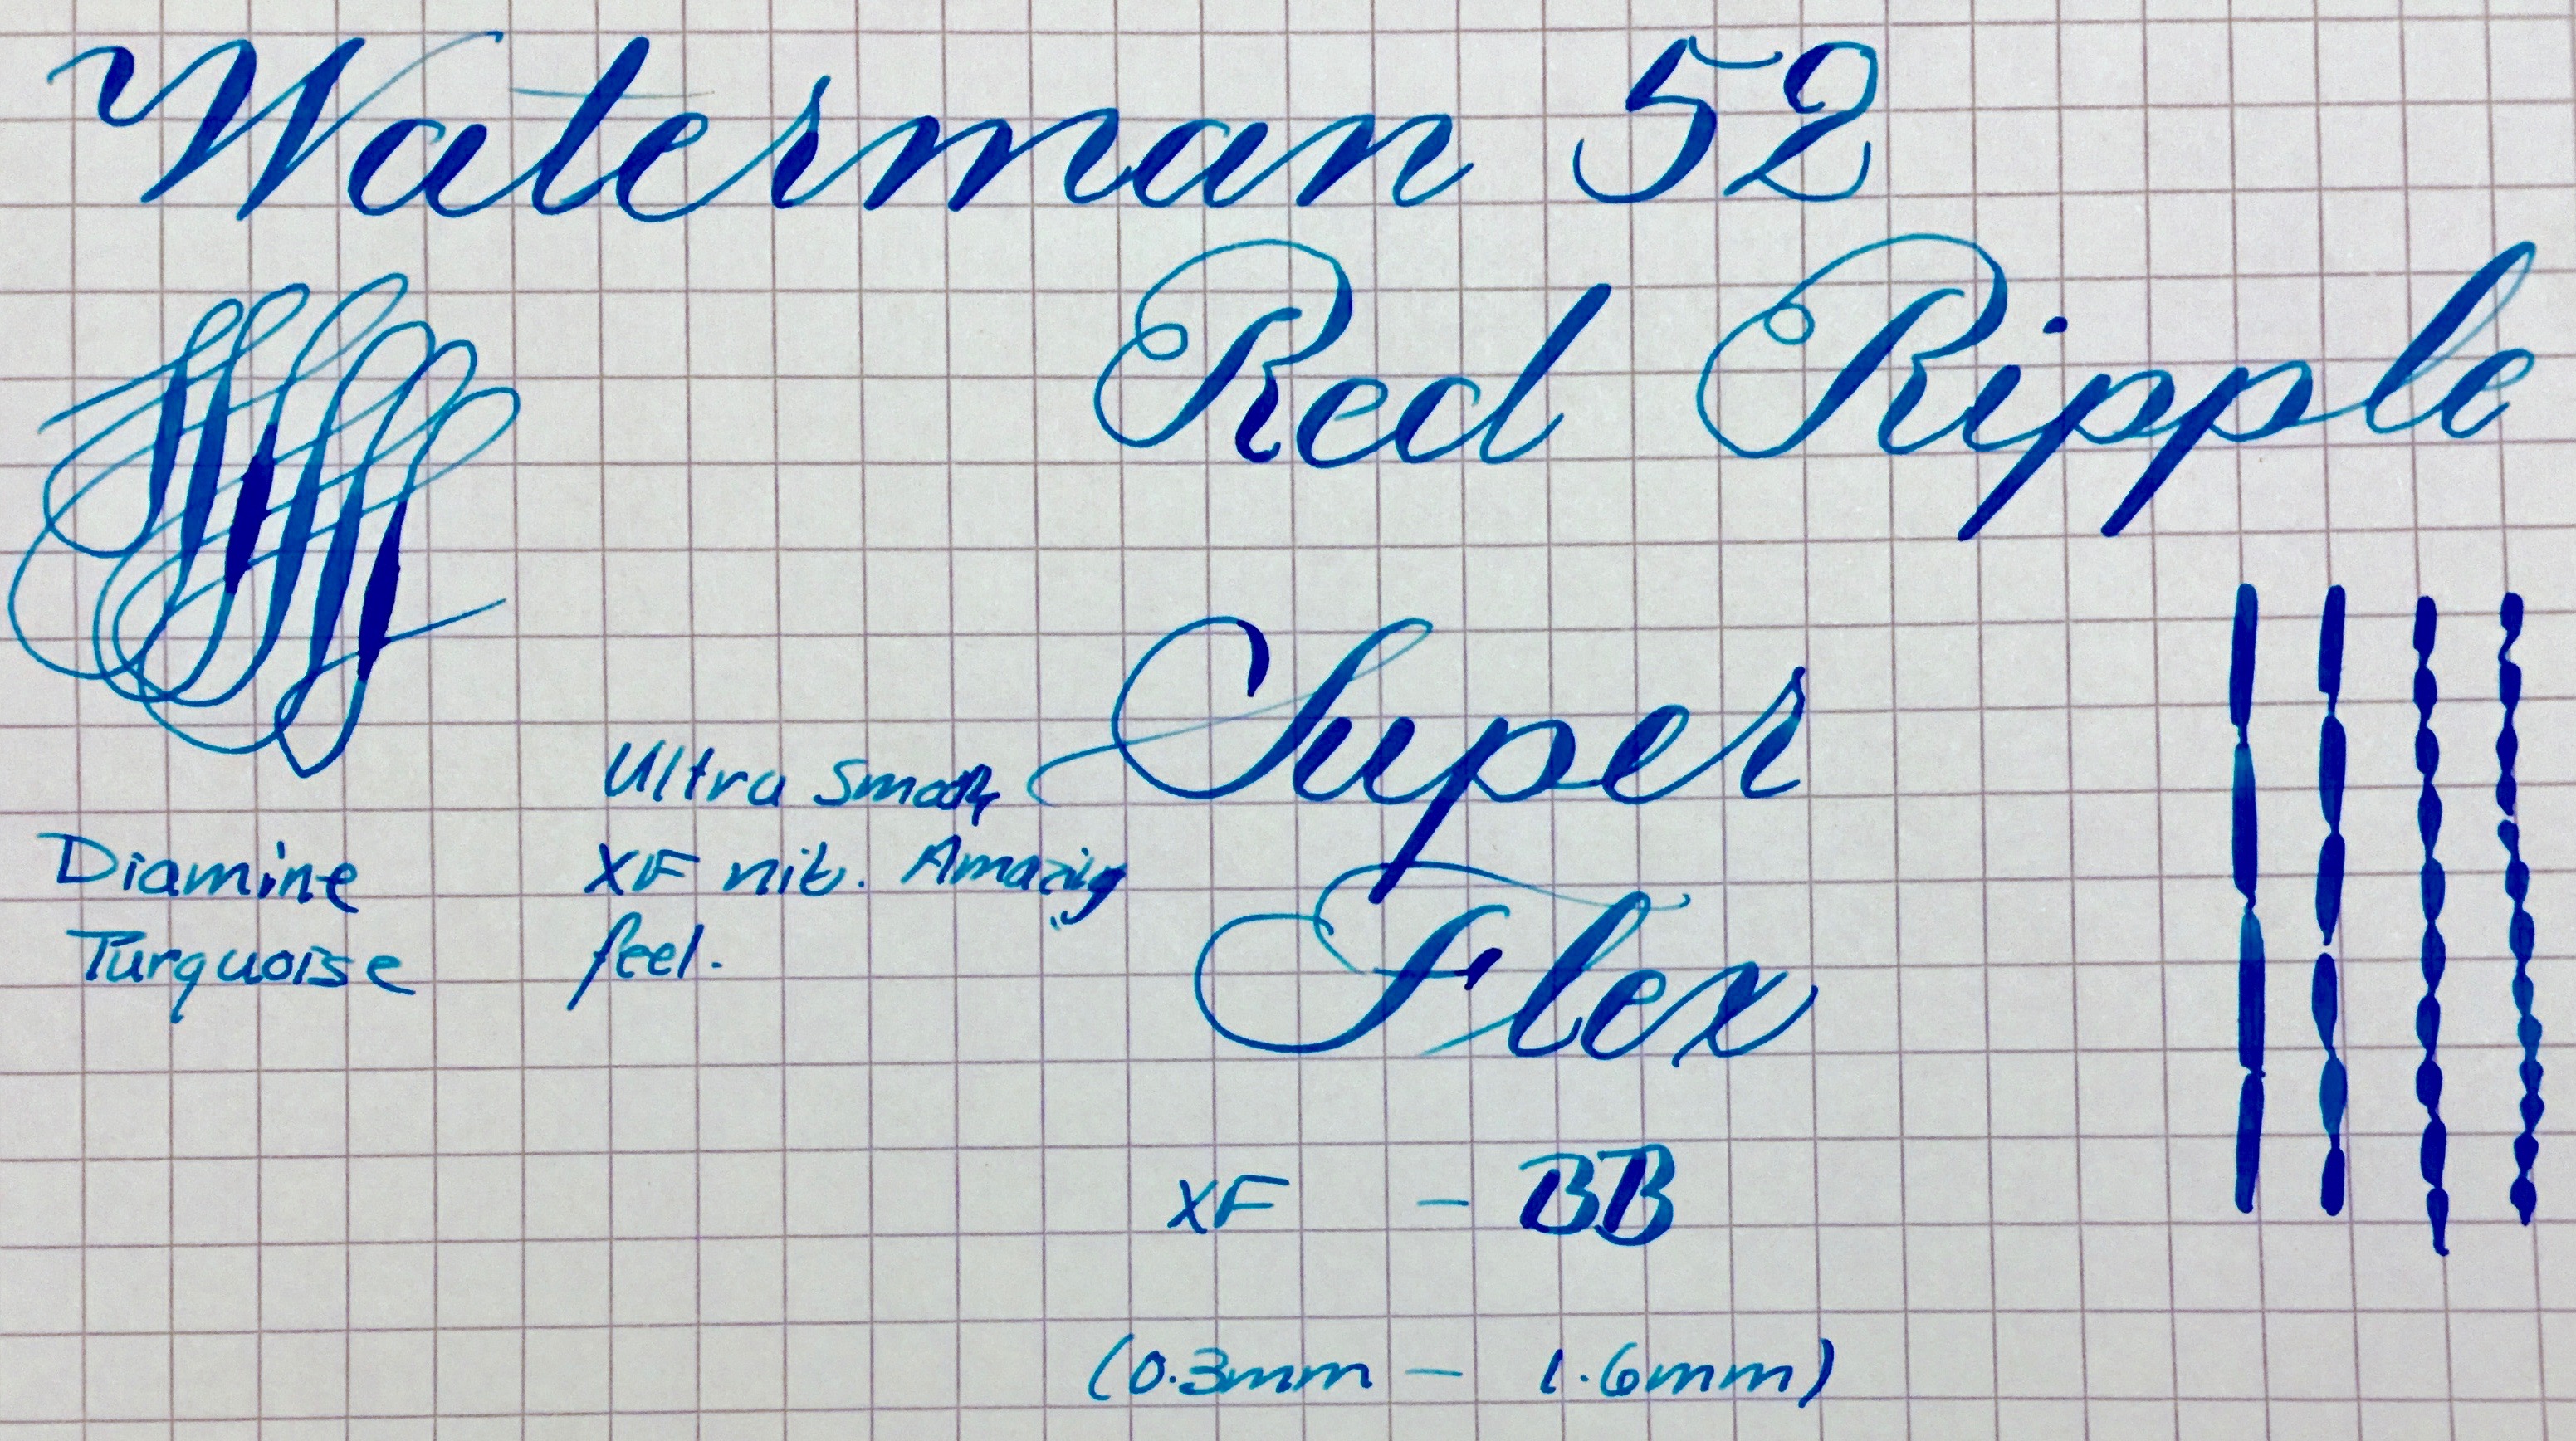 Waterman 52
Red Ripple
Super
Flex
Ultra Smooth
XF nib. Amazing
feel.
Diamine
Turquoise
XF - BB
(0.3mm - 1.6mm)